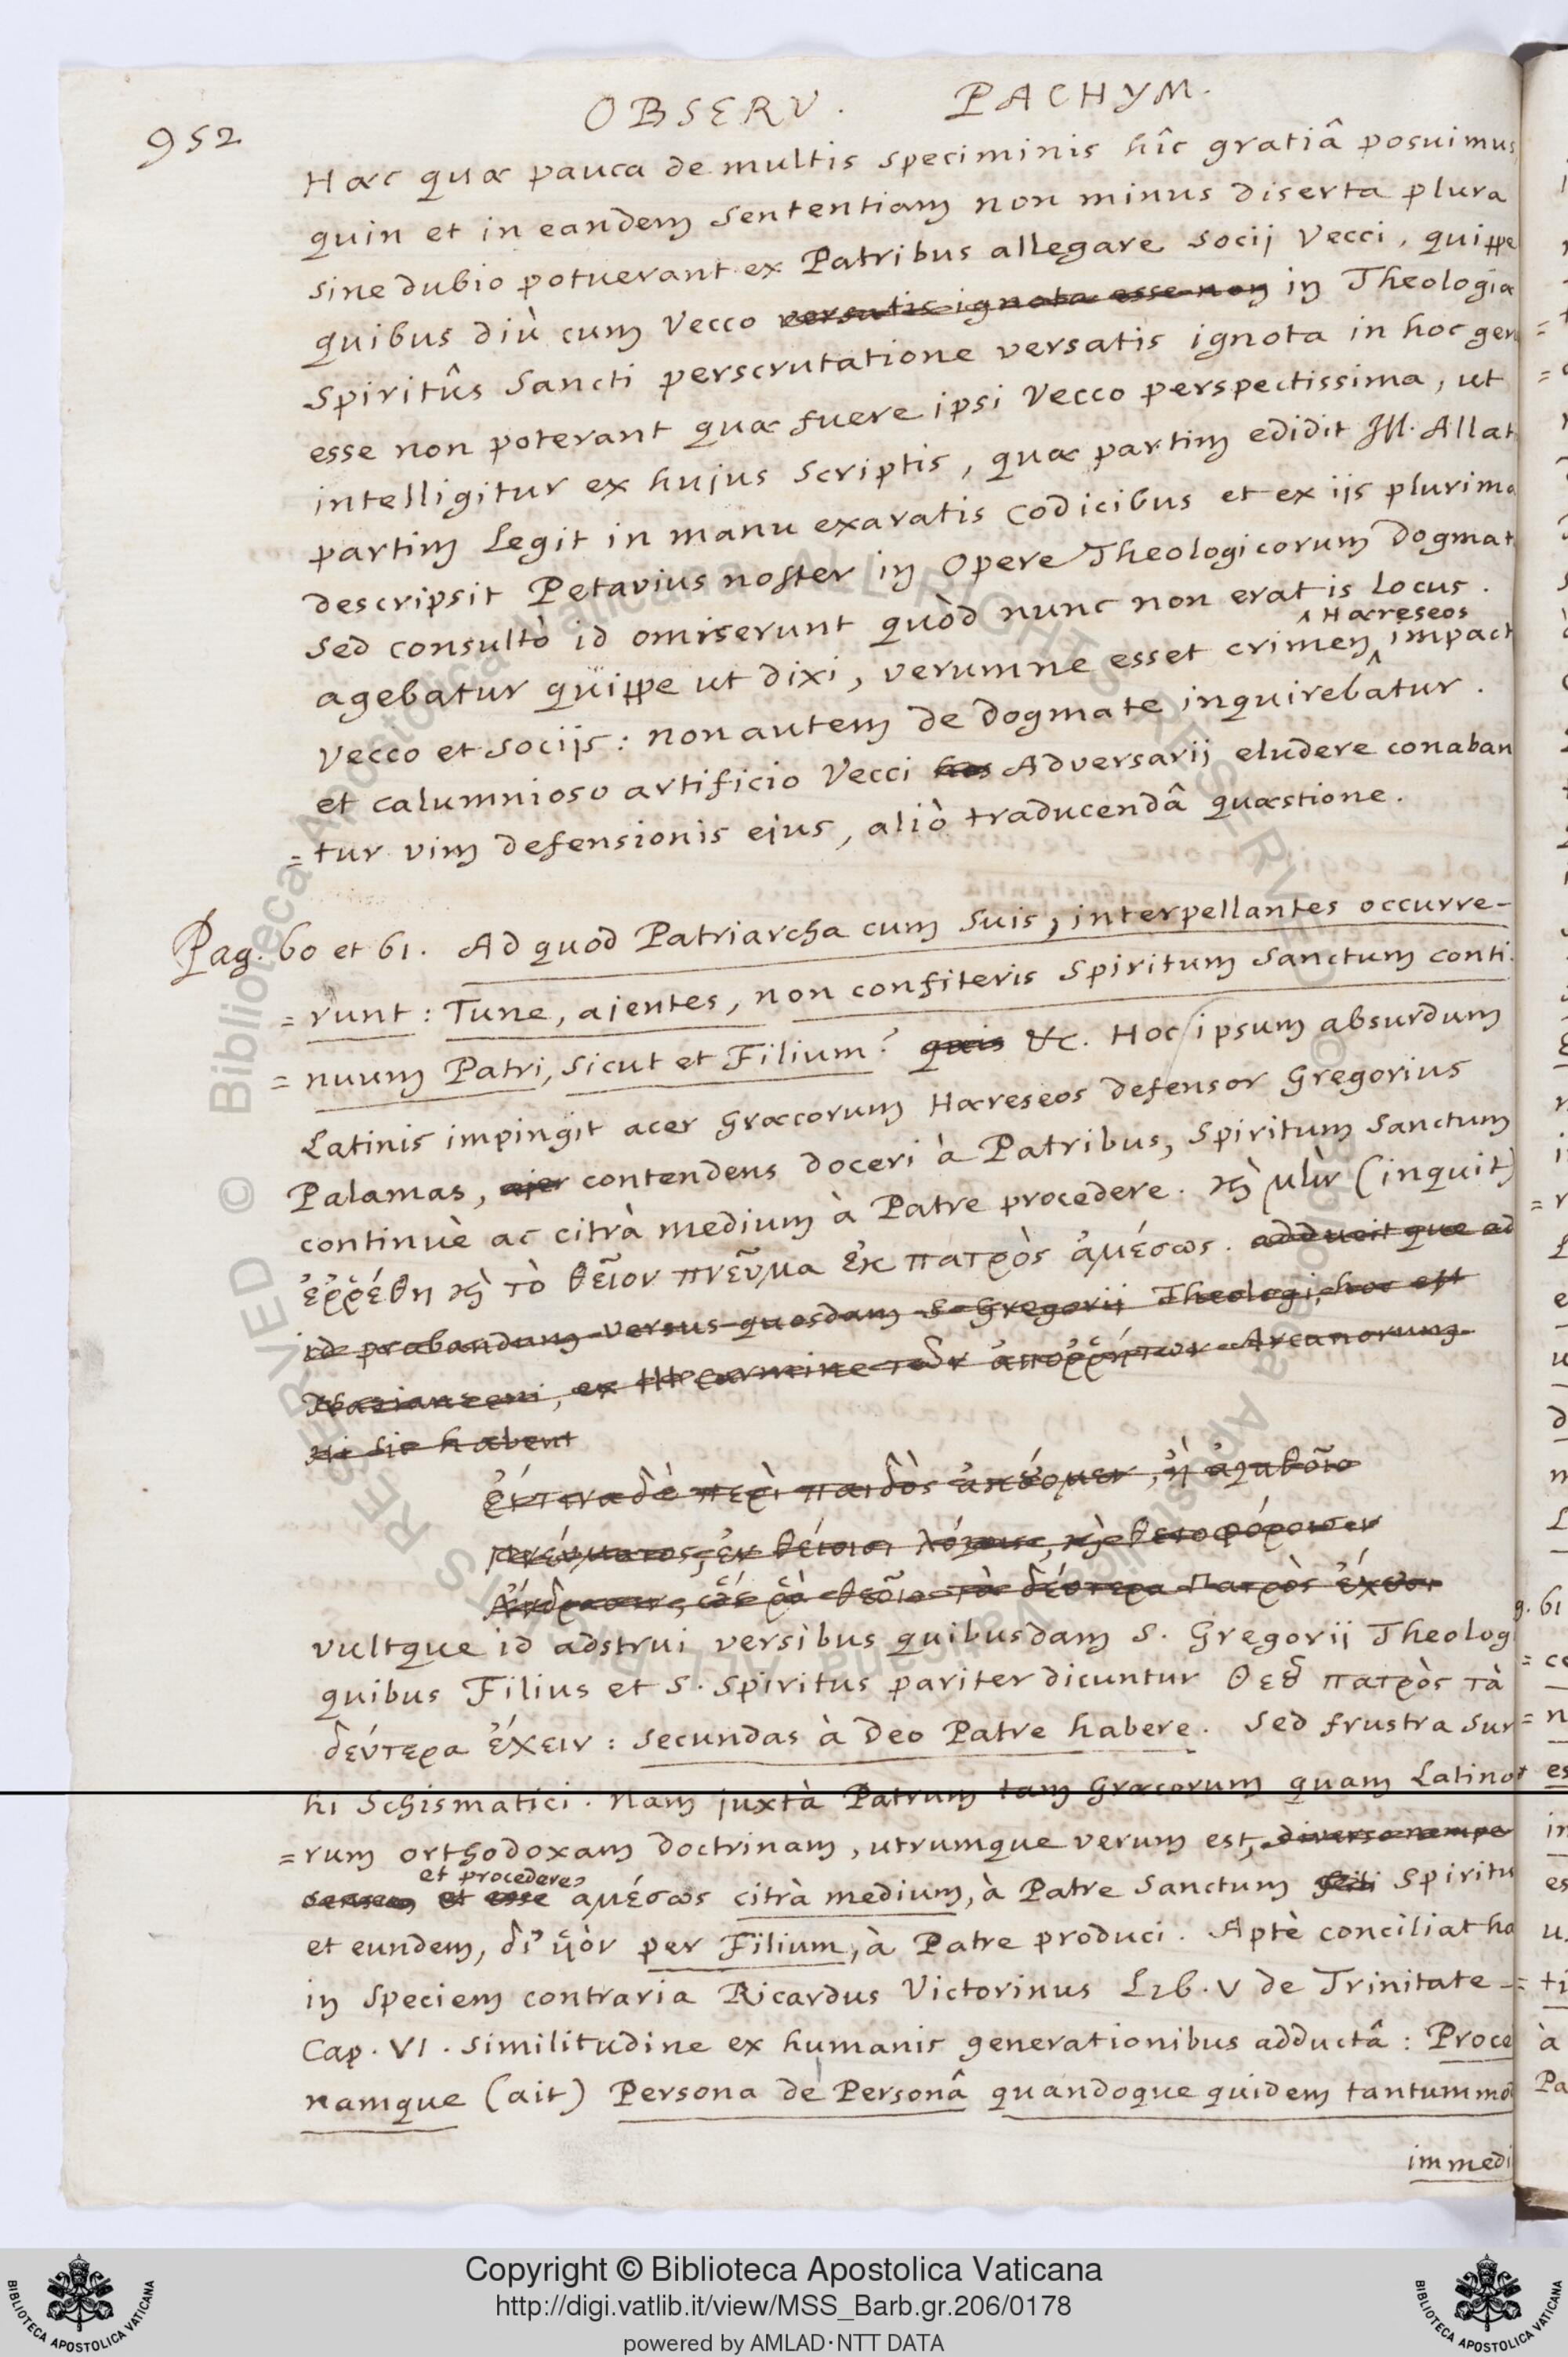 OBSERV. PACHYM.
952
Hæc quæ pauca de multis speciminis hîc gratiâ posuimus
quin et in eandem sententiam non minus diserta plura
sine dubio potuerant ex Patribus allegare socij Vecci, quippe
quibus diù cum Vecco versatis ignota esse non in Theologiæ
Spiritûs Sancti perscrutatione versatis ignota in hoc gen
esse non poterant quæ fuere ipsi Vecco perspectissima, ut
intelligitur ex hujus scriptis, quæ partim edidit Ill. Allat
partim legit in manu exaratis codicibus et ex ijs plurima
descripsit Petavius noster in Opere Theologicorum Dogmat
Sed consultò id omiserunt quòd nunc non erat is locus.
Hæreseos
agebatur quippe ut dixi, verumne esset crimen impact
Vecco et socijs: non autem de dogmate inquirebatur.
et calumnioso artificio Vecci hos Adversarij eludere conaban
=tur vim defensionis ejus, aliò traducendâ quæstione.
Pag. 60 et 61. Ad quod Patriarcha cum suis, interpellantes occurre-
=runt: Tune, ajentes, non confiteris Spiritum Sanctum conti
=nuum Patri, sicut et Filium? quis &c. Hoc ipsum absurdum
Latinis impingit acer Græcorum Hæreseos defensor Gregorius
Palamas, ajer contendens doceri à Patribus, Spiritum Sanctum
continuè ac citrà medium à Patre procedere. καὶ μὴν (inquit)
ἐῤῥέθη καὶ τὸ θεῖον πνεῦμα ἐκ πατρὸς ἀμέσως. adducit que ad
id probandum versus quosdam S. Gregorij Theologi, hoc est
Nazianzeni, ex IIIo Carmine τῶν ἀποῤῥήτων Arcanorum
ui sic habent
δὲ περὶ παιδὸς ἀκούομεν, ἢ ἀγαθοῖο
πνεύματος, ἐν θείοισι λόγοις, καὶ θειοφόροισιν
Ἀνδράσιν, ὥς ῥα θεοῖο τὰ δεύτερα πατρὸς ἔχουσι
vultque id adstrui versibus quibusdam S. Gregorij Theolog
quibus Filius et S. Spiritus pariter dicuntur θεοῦ πατρὸς τὰ
δεύτερα ἔχειν: secundas à Deo Patre habere. Sed frustra sur
hi Schismatici. Nam juxtà Patrum tam Græcorum quam Latino
=rum orthodoxam doctrinam, utrumque verum est, diverso nempe
et procedere
sensu et esse ἀμέσως citrà medium, à Patre Sanctum Spiritu
et eundem, δι’ υἱὸν per Filium, à Patre produci. Aptè conciliat hæ
in speciem contraria Ricardus Victorinus Lib. V de Trinitate
Cap. VI. similitudine ex humanis generationibus adductâ: Proce
namque (ait) Persona de Personâ quandoque quidem tantummo
immedi
Copyright © Biblioteca Apostolica Vaticana
http://digi.vatlib.it/view/MSS_Barb.gr.206/0178
powered by AMLAD·NTT DATA